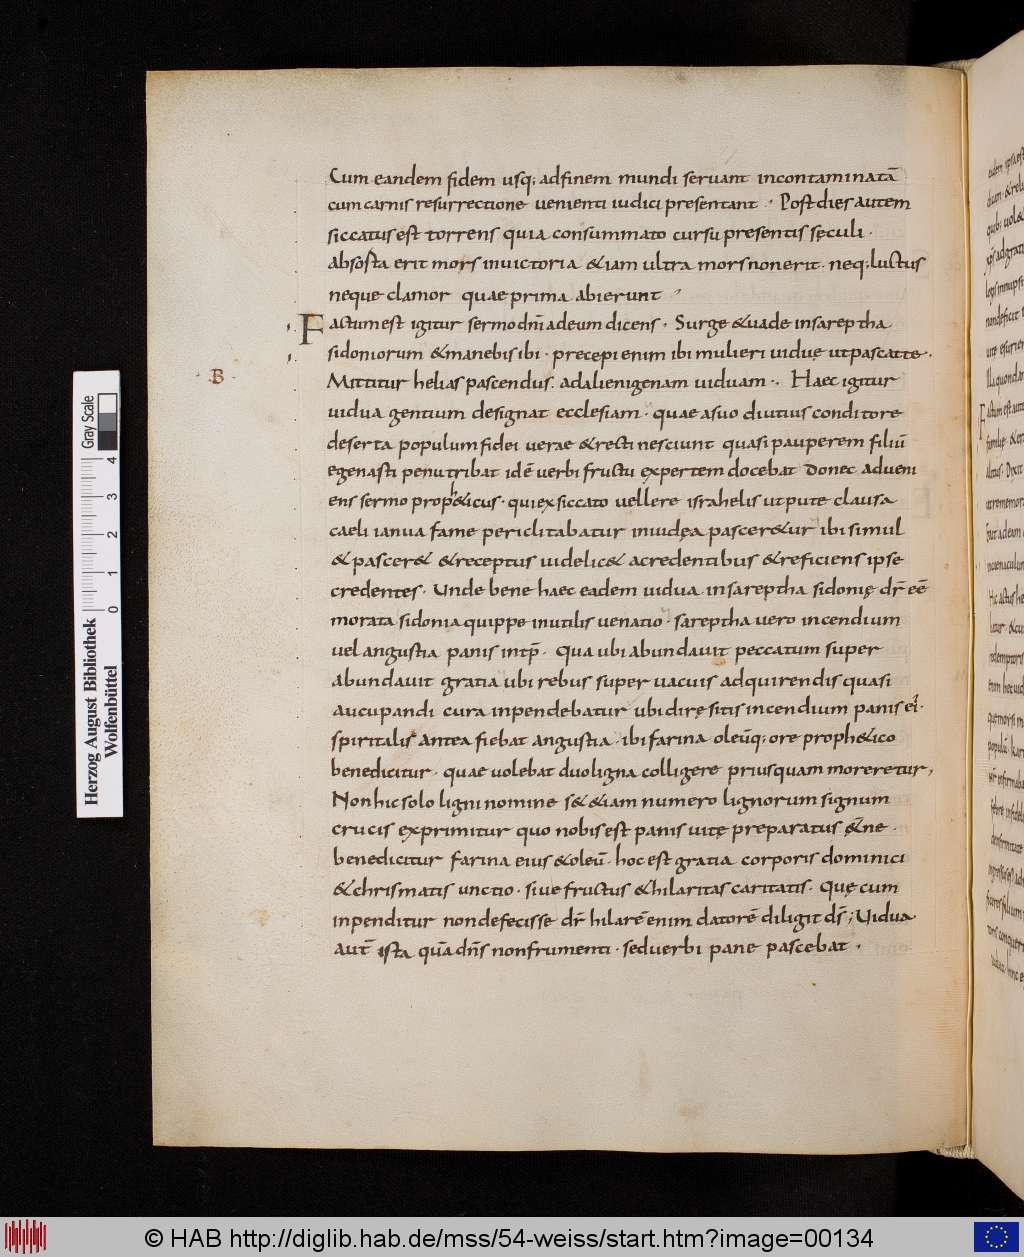 Cum eandem fidem usq; adfinem mundi servant incontaminatā
cum carnis resurrectione uenienti iudici presentant · Post dies autem
siccatus est torrens quia consummato cursu presentis sęculi ·
absosta erit mors inuictoria &iam ultra mors non erit · neq; luctus
neque clamor quae prima abierunt
Factum est igitur sermo dn̄i adeum dicens · Surge &uade insareptha
sidoniorum &manebis ibi · precepi enim ibi mulieri uiduę utpascat te ·
B
Mittitur helias pascendus · adalienigenam uiduam · Haec igitur
uidua gentium designat ecclesiam · quae asuo diutius conditore
deserta populum fidei uerae &recti nesciunt quasi pauperem filiū
egenasti penu tribat idē verbi fructu expertem docebat Donec adueni
ens sermo proph&icus · qui exsiccato uellere israhelis ut pute clausa
caeli ianua fame periclitabatur iniudęa pascer&ur ibi simul
&pascer& &receptus uidelic& acredentibus &reficiens ipse
credentes · Unde bene haec eadem uidua insareptha sidonię dr̄ eē
morata sidonia quippe inutilis uenatio · sareptha uero incendium
uel angustia panis intp̄ · Qua ubi abundauit peccatum super
abundauit gratia ubi rebus super uacuis adquirendis quasi
aucupandi cura inpendebatur ubi dirę sitis incendium panis ei ·
spiritalis antea fiebat angustia · ibi farina oleūq; ore proph&ico
benedicitur · quae uolebat duo ligna colligere priusquam moreretur,
Non hic solo ligni nomine s& &iam numero lignorum signum
crucis exprimitur quo nobis est panis uitę preparatus &̄ne ·
benedicitur farina eius &oleū · hoc est gratia corporis dominici
&chrismatis unctio · siue fructus &hilaritas caritatis · Quę cum
inpenditur non defecisse dr̄ hilarē enim datorē diligit ds̄; Uidua
aut̄ ista quā dn̄s non frumenti · sed uerbi pane pascebat ·
Herzog August Bibliothek
Wolfenbüttel
Gray Scale
0 1 2 3 4
© HAB http://diglib.hab.de/mss/54-weiss/start.htm?image=00134